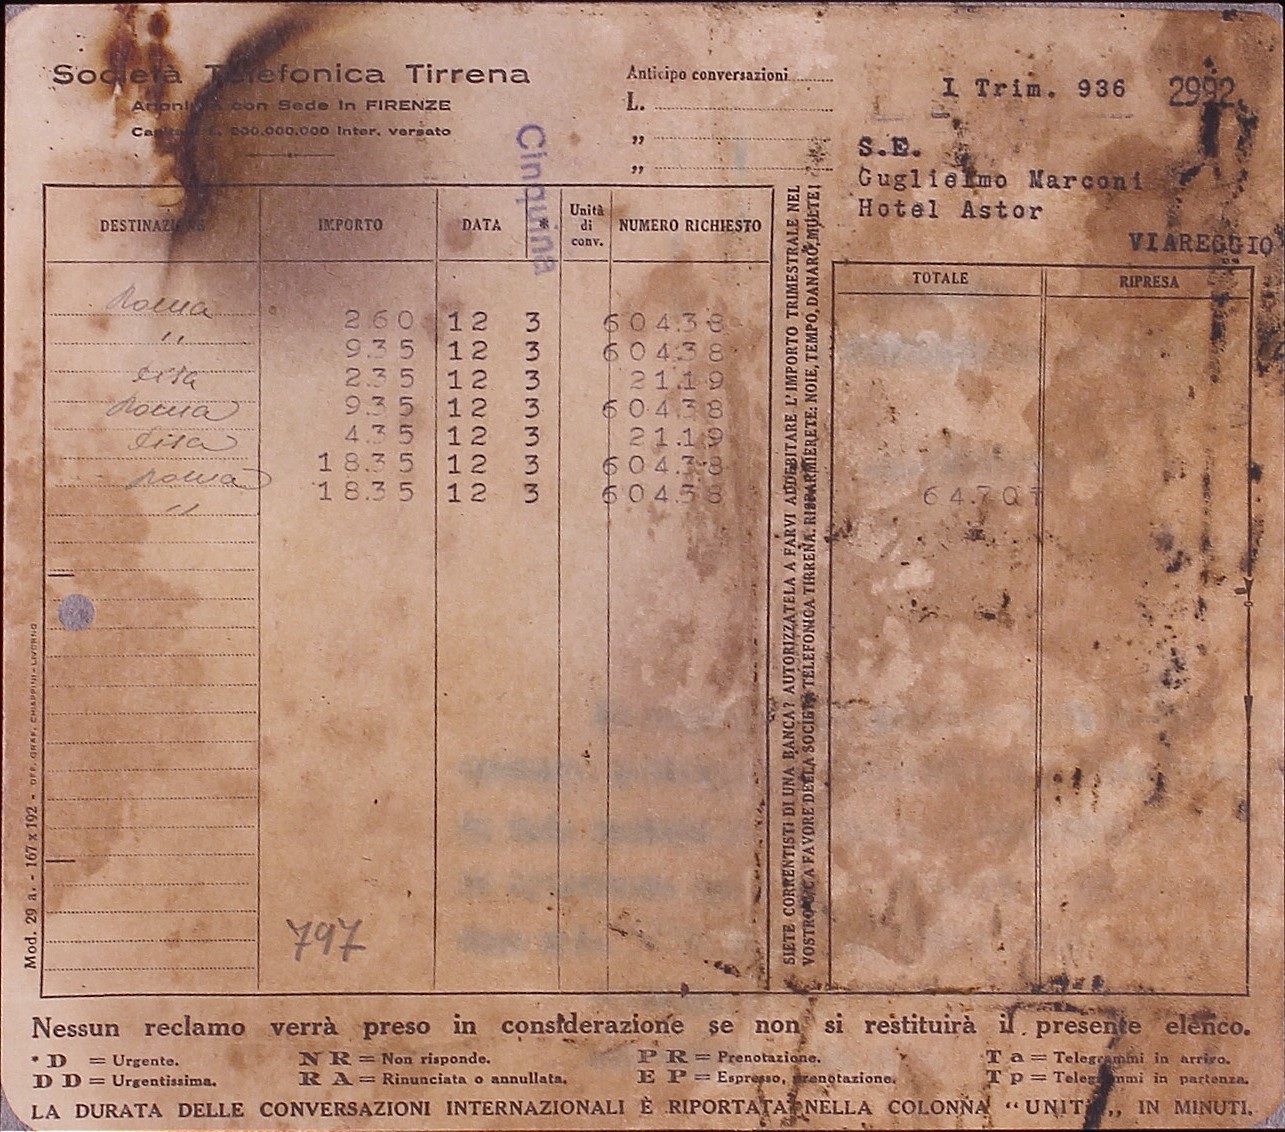 Società Telefonica Tirrena
Anonima con Sede in FIRENZE
Capitale L. 200.000.000 Inter. versato
Anticipo conversazioni
L.
„
„
I Trim. 936 2992
S.E.
Guglielmo Marconi
Hotel Astor
VIAREGGIO
Cinquina
DESTINAZIONE IMPORTO DATA * Unità di conv. NUMERO RICHIESTO
TOTALE RIPRESA
Roma 2 6 0 1 2 3 6 0 4.3 8
,, 9.3 5 1 2 3 6 0 4.3 8
Pisa 2.3 5 1 2 3 2 1.1 9
Roma 9.3 5 1 2 3 6 0 4.3 8
Pisa 4.3 5 1 2 3 2 1.1 9
Roma 1 8.3 5 1 2 3 6 0 4.3 8
,, 1 8.3 5 1 2 3 6 0 4.3 8
6 4.7 0
797
SIETE CORRENTISTI DI UNA BANCA? AUTORIZZATELA A FARVI ADDEBITARE L'IMPORTO TRIMESTRALE NEL
VOSTRO C/C A FAVORE DELLA SOCIETÀ TELEFONICA TIRRENA. RISPARMIERETE: NOIE, TEMPO, DANARO, MULTE!
Mod. 29 a. - 167 x 192 - OFF. GRAF. CHIAPPINI - LIVORNO
Nessun reclamo verrà preso in considerazione se non si restituirà il presente elenco.
*D = Urgente. NR = Non risponde. PR = Prenotazione. Ta = Telegrammi in arrivo.
DD = Urgentissima. RA = Rinunciata o annullata. EP = Espresso, prenotazione. Tp = Telegrammi in partenza.
LA DURATA DELLE CONVERSAZIONI INTERNAZIONALI È RIPORTATA NELLA COLONNA “UNITÀ„ IN MINUTI.